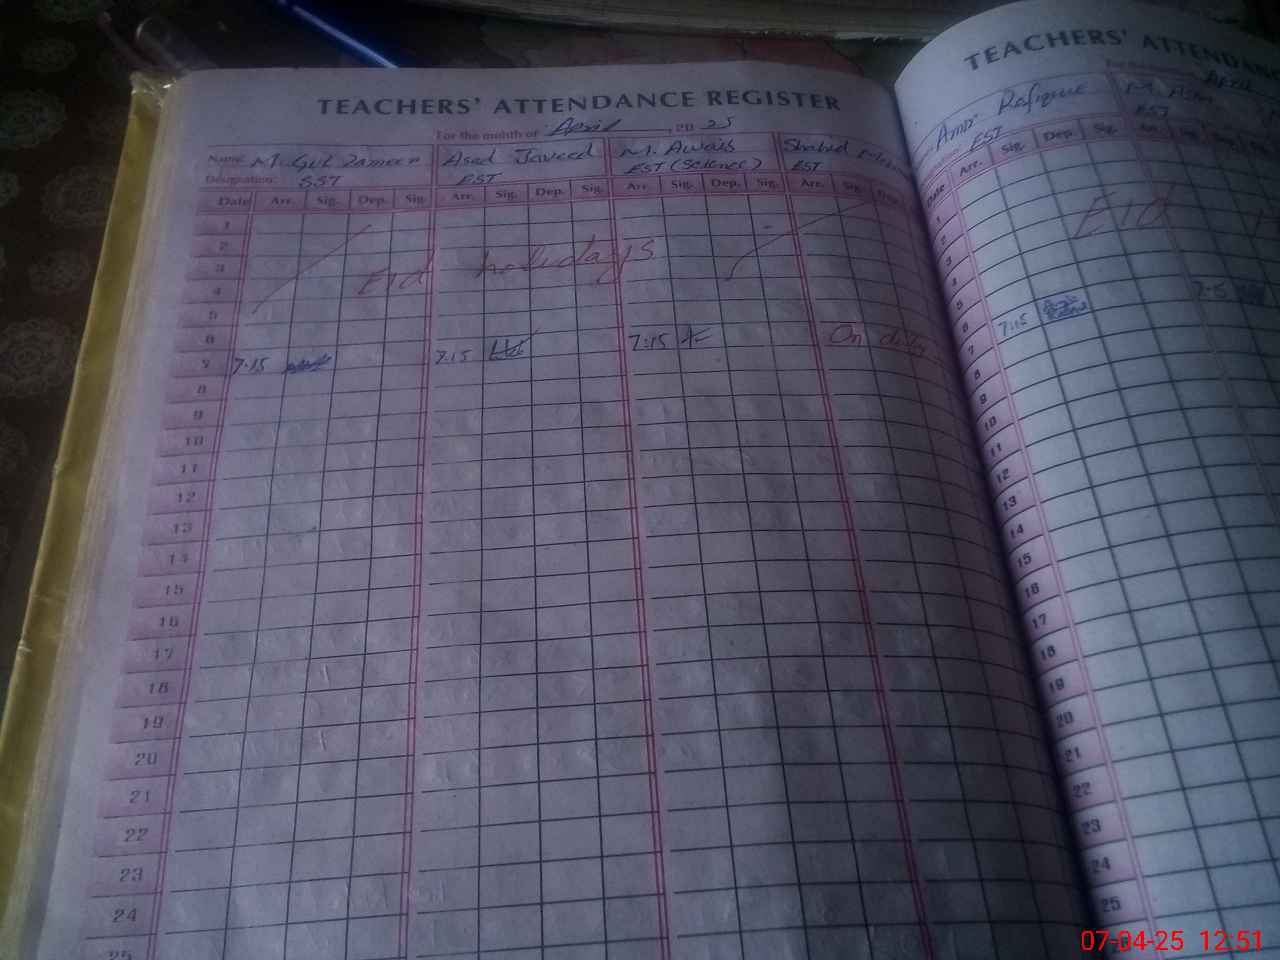 TEACHERS' ATTENDANCE REGISTER
For the month of April, 2025
Name: M. Gul Zameen Asad Javeed M. Awais Shahid
Designation: SST EST EST (Science) EST
Date Arr. Sig. Dep. Sig. Arr. Sig. Dep. Sig. Arr. Sig. Dep. Sig. Arr. Sig. Dep.
1
2
3
4
5
Eid holidays
6
7 7:15 7:15 7:15 On duty
8
9
10
11
12
13
14
15
16
17
18
19
20
21
22
23
24
25
TEACHERS' ATTENDANCE
April
Amir Rafique M.
EST EST
Date Arr. Sig. Dep. Sig. Arr.
1
2
3
4
5
Eid
6
7 7:15 7:15
8
9
10
11
12
13
14
15
16
17
18
19
20
21
22
23
24
25
07-04-25 12:51